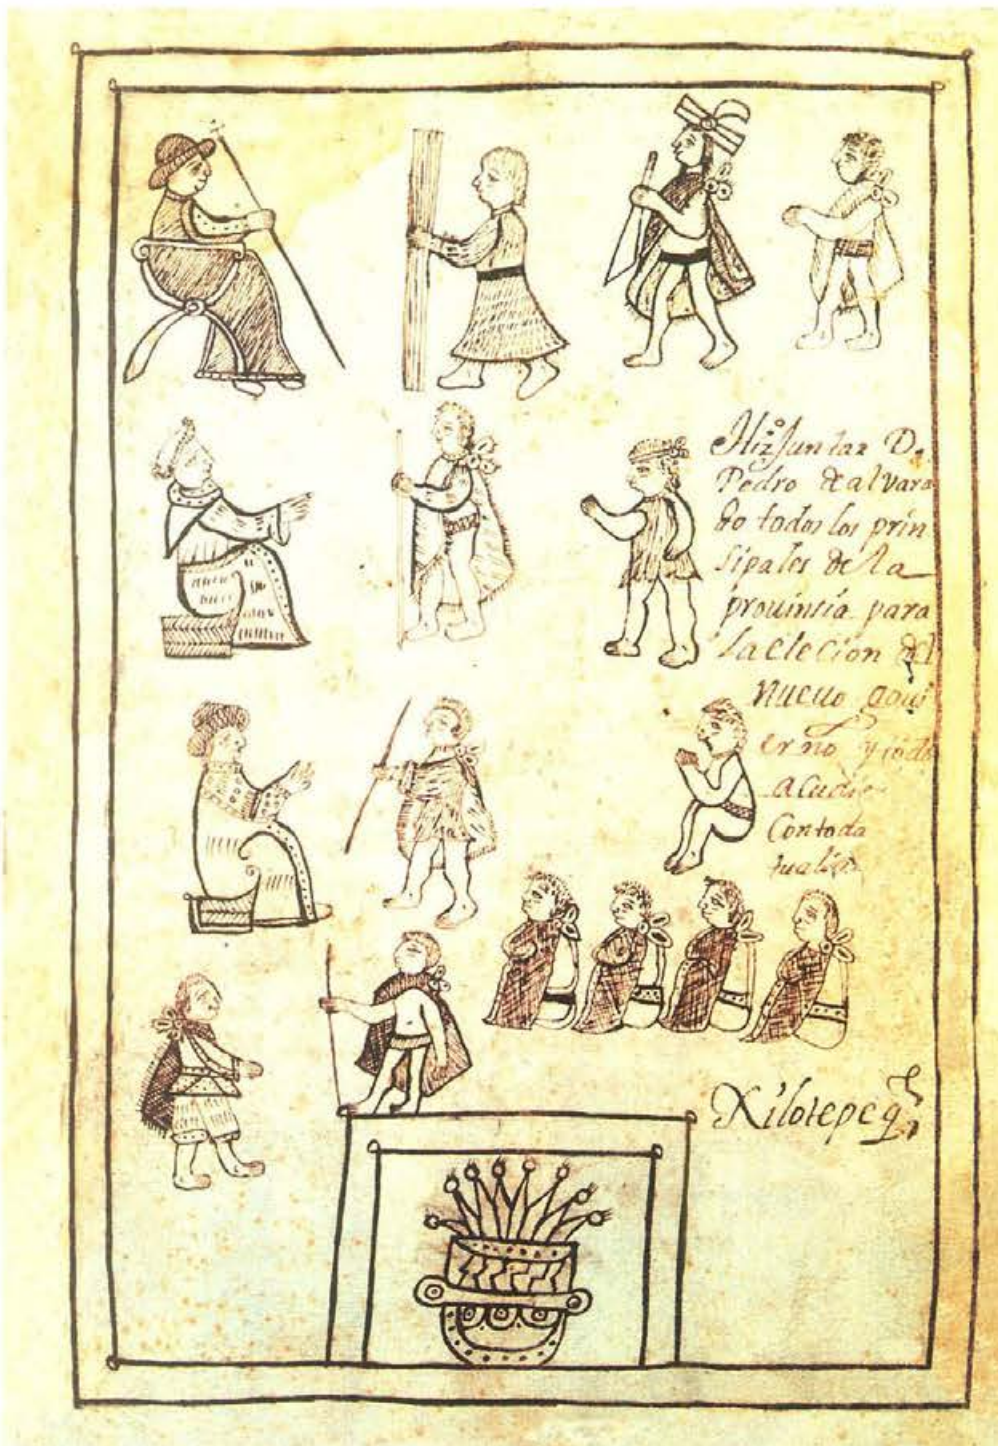 Hizo Juntar D.
Pedro de alvara
do todos los prin
sipales de la
prouinsia para
la elecion del
nueuo goui
erno y todo
acudie
Con toda
Xilotepeq